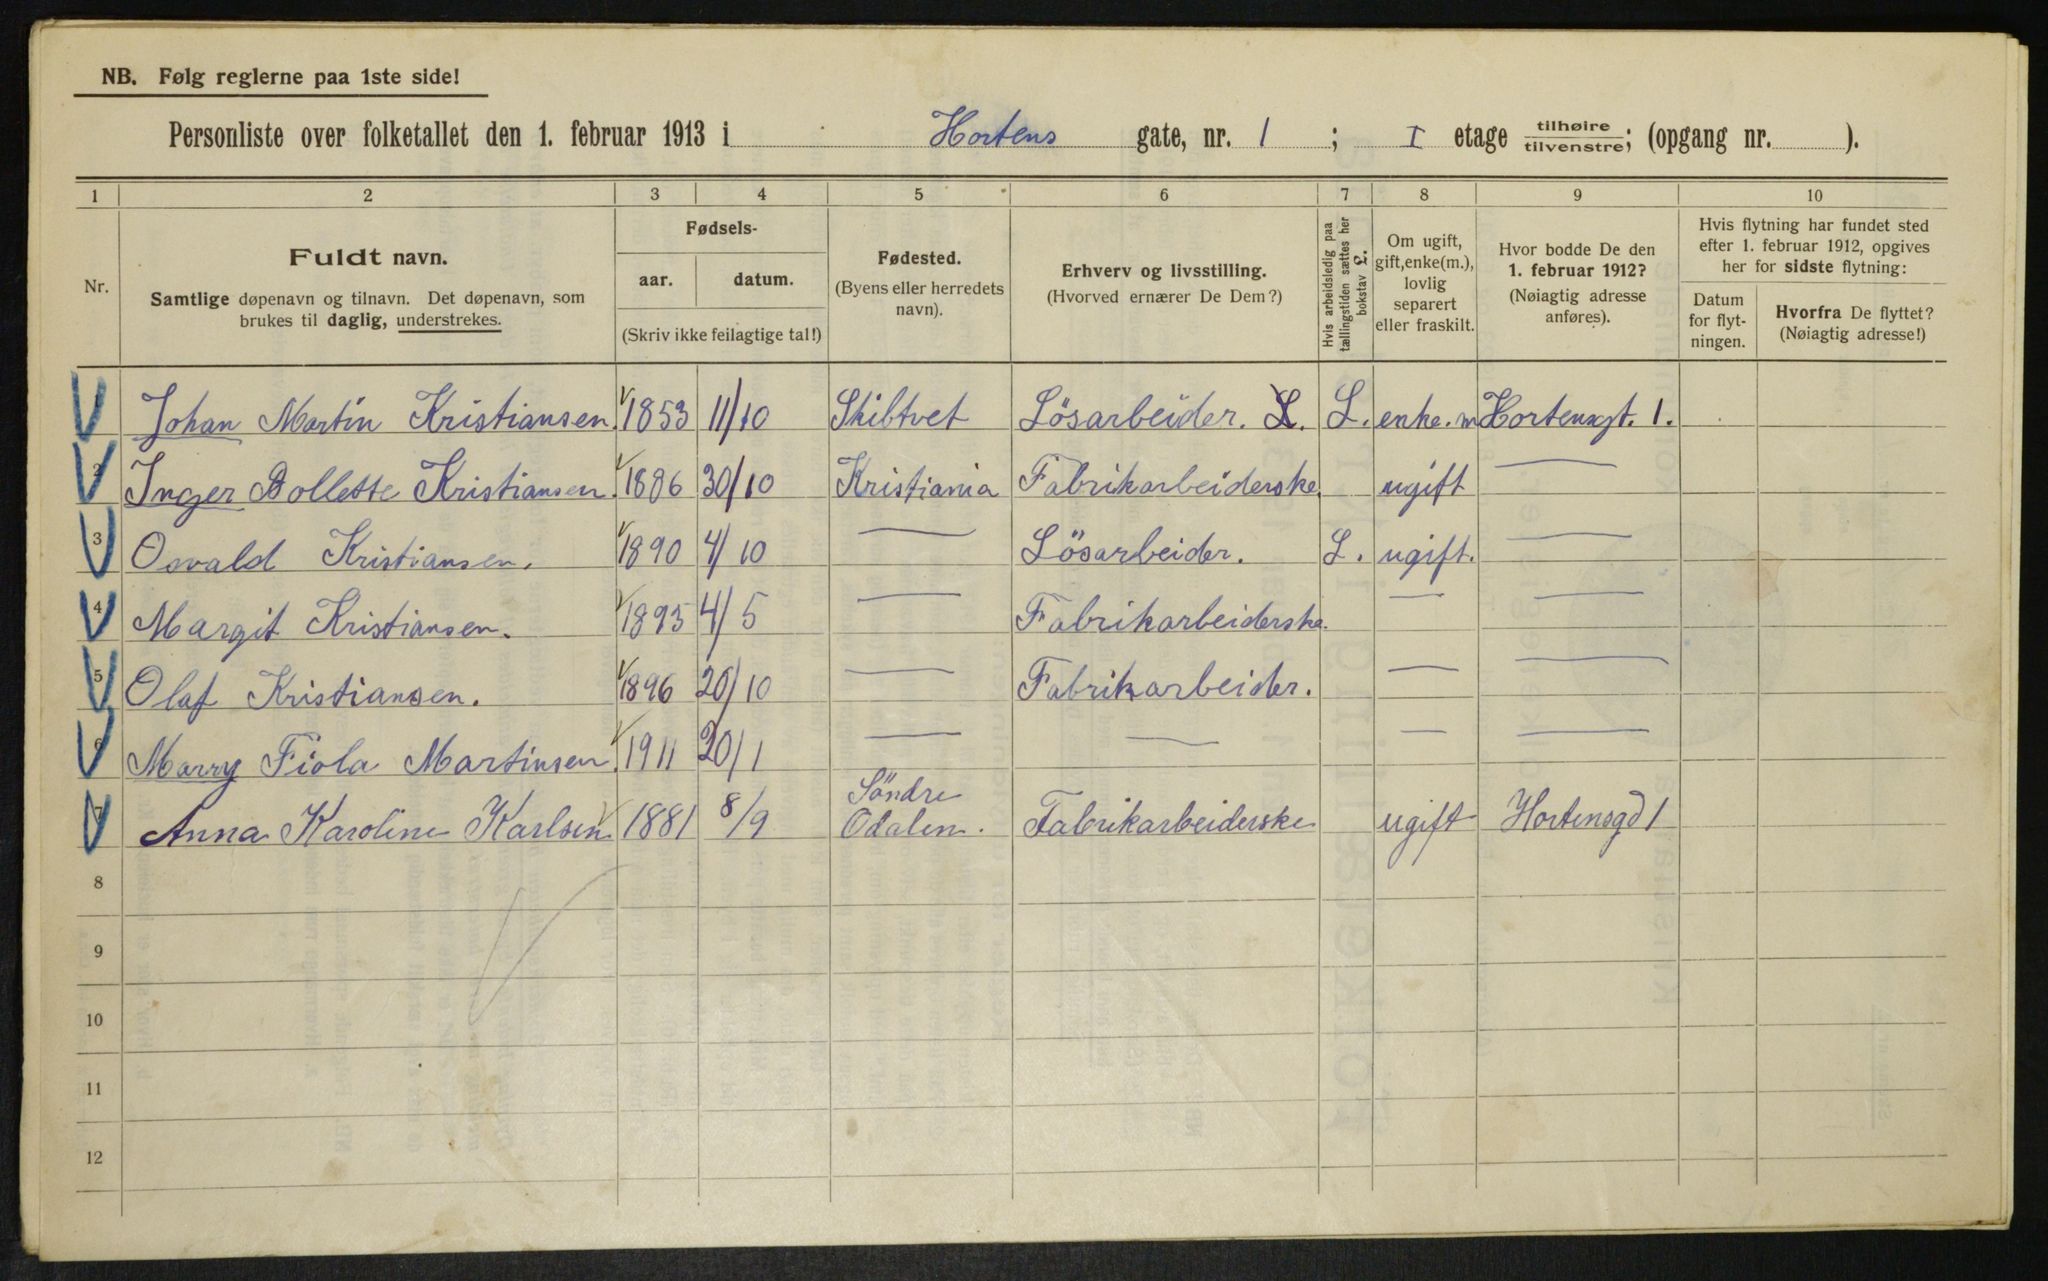 NB. Følg reglerne paa 1ste side!
Personliste over folketallet den 1. februar 1913 i Hortens gate, nr. 1 ; I etage tilhøire tilvenstre; (opgang nr. ).
1 2 3 4 5 6 7 8 9 10
Nr.
Fuldt navn.
Samtlige døpenavn og tilnavn. Det døpenavn, som
brukes til daglig, understrekes.
Fødsels-
aar. datum.
(Skriv ikke feilagtige tal!)
Fødested.
(Byens eller herredets
navn).
Erhverv og livsstilling.
(Hvorved ernærer De Dem?)
Hvis arbeidsledig paa
tællingstiden sættes her
bokstav L.
Om ugift,
gift, enke(m.),
lovlig
separert
eller fraskilt.
Hvor bodde De den
1. februar 1912?
(Nøiagtig adresse
anføres).
Hvis flytning har fundet sted
efter 1. februar 1912, opgives
her for sidste flytning:
Datum
for flyt-
ningen.
Hvorfra De flyttet?
(Nøiagtig adresse!)
Johan Martin Kristiansen. 1853 11/10 Skibtvet Lösarbeider. L. L. enke.m Hortensgt. 1.
2 Inger Bollette Kristiansen. 1886 30/10 Kristiania Fabrikarbeiderske. ugift —
3 Osvald Kristiansen. 1890 4/10 — Lösarbeider. L. ugift. —
4 Margit Kristiansen. 1895 4/5 — Fabrikarbeiderske. — —
5 Olaf Kristiansen. 1896 20/10 — Fabrikarbeider. — —
6 Marry Fiola Martinsen. 1911 20/1 — — — —
7 Anna Karoline Karlsen 1881 8/9 Söndre Odalen. Fabrikarbeiderske ugift Hortensgd 1
8
9
10
11
12